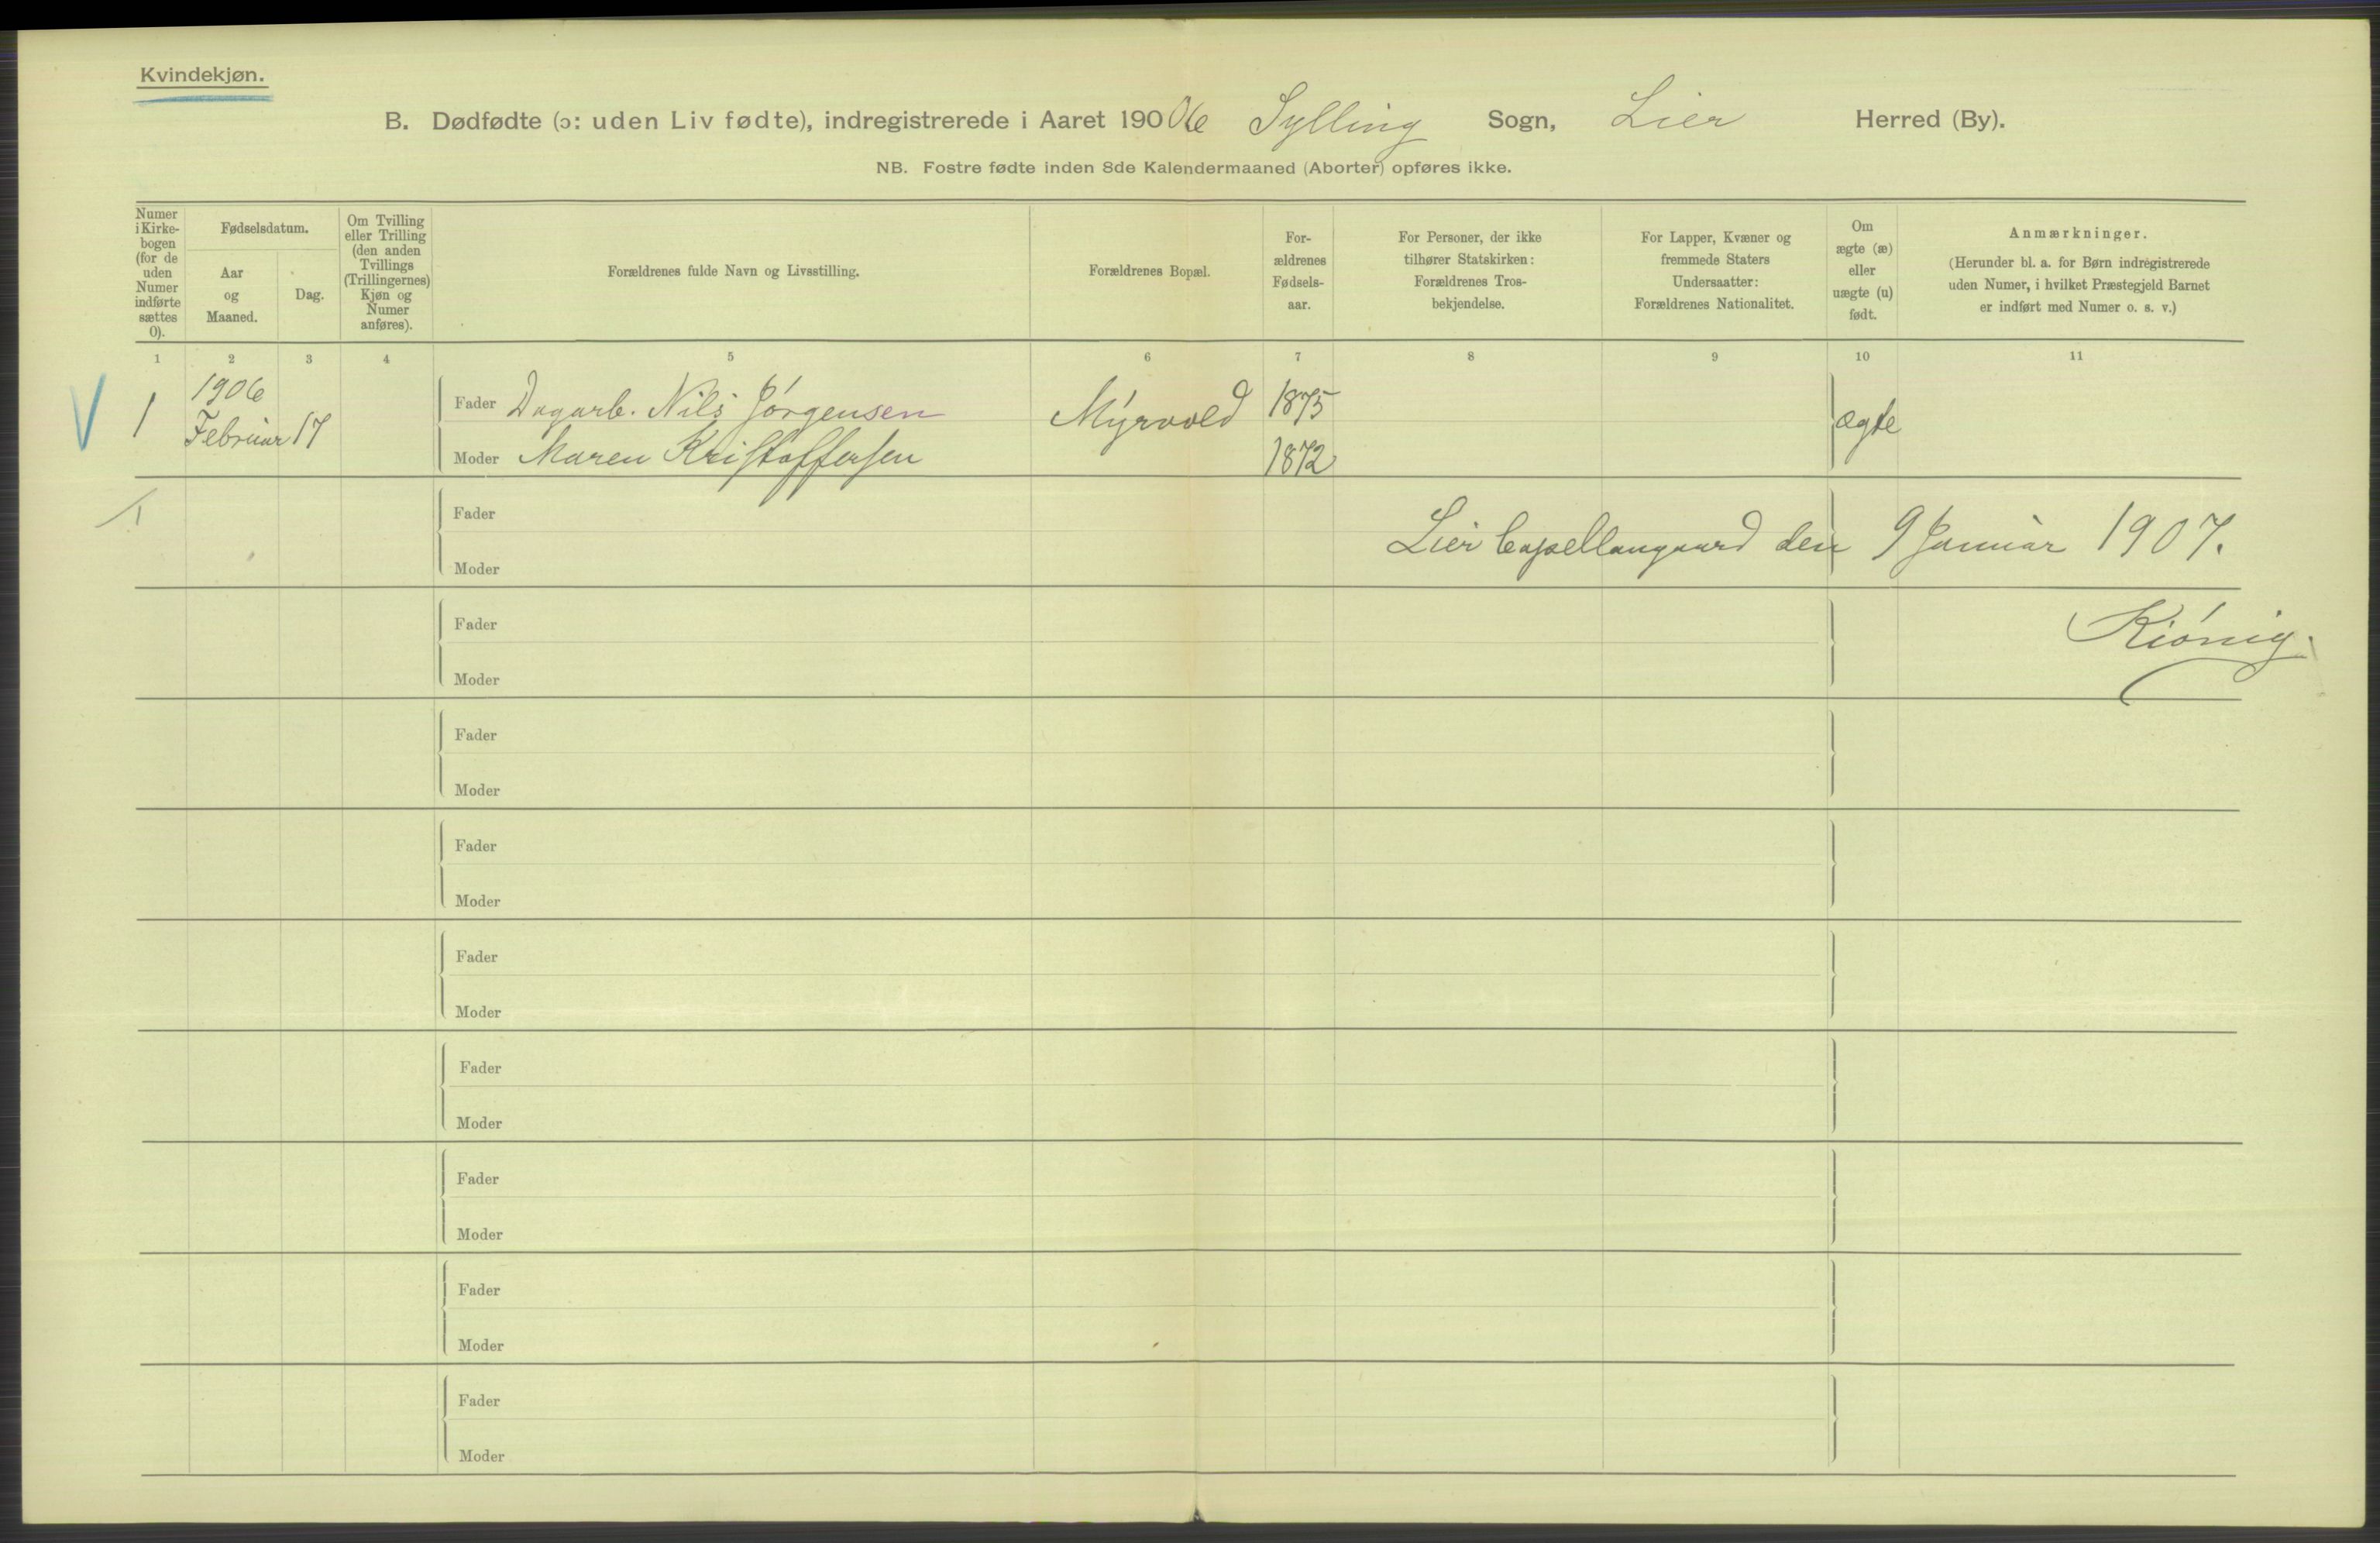 Kvindekjøn.
B. Dødfødte (ɔ: uden Liv fødte), indregistrerede i Aaret 19006 Sylling Sogn, Lier Herred (By).
NB. Fostre fødte inden 8de Kalendermaaned (Aborter) opføres ikke.
Numer
i Kirke-
bogen
(for de
uden
Numer
indførte
sættes
0).
Fødselsdatum.
Aar
og
Maaned.
Dag.
Om Tvilling
eller Trilling
(den anden
Tvillings
(Trillingernes)
Kjøn og
Numer
anføres).
Forældrenes fulde Navn og Livsstilling.
Forældrenes Bopæl.
For-
ældrenes
Fødsels-
aar.
For Personer, der ikke
tilhører Statskirken:
Forældrenes Tros-
bekjendelse.
For Lapper, Kvæner og
fremmede Staters
Undersaatter:
Forældrenes Nationalitet.
Om
ægte (æ)
eller
uægte (u)
født.
Anmærkninger.
(Herunder bl. a. for Børn indregistrerede
uden Numer, i hvilket Præstegjeld Barnet
er indført med Numer o. s. v.)
1 2 3 4 5 6 7 8 9 10 11
1906
1 Februar 17
Fader Dagarb. Nils Jørgensen Myrvold 1875 ægte
Moder Maren Kristoffersen 1872
1
Fader
Lier Capellangaard den 9 Januar 1907.
Moder
Kiønig.
Fader
Moder
Fader
Moder
Fader
Moder
Fader
Moder
Fader
Moder
Fader
Moder
Fader
Moder
Fader
Moder